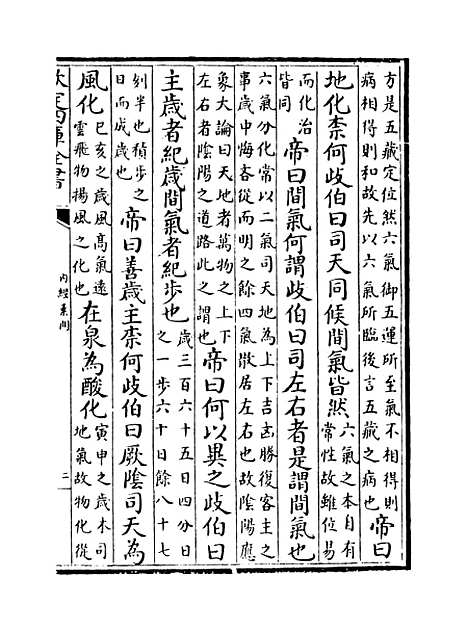 方是五藏定位然六氣御五運所至氣不相得則
病相得則和故先以六氣所臨後言五藏之病也
帝曰
地化柰何歧伯曰司天同候間氣皆然
六氣之本自有
常性故雖位易
而化治
皆同
帝曰間氣何謂歧伯曰司左右者是謂間氣也
六氣分化常以二氣司天地為上下吉凶勝復客主之
事歲中悔吝從而明之餘四氣散居左右也故陰陽應
象大論曰天地者萬物之上下
左右者陰陽之道路此之謂也
帝曰何以異之歧伯曰
主歲者紀歲間氣者紀步也
歲三百六十五日四分日
之一步六十日餘八十七
刻半也積步之
日而成歲也
帝曰善歲主柰何歧伯曰厥陰司天為
風化
巳亥之歲風高氣遠
雲飛物揚風之化也
在泉為酸化
寅申之歲木司
地氣故物化從
欽定四庫全書
內經素問
二